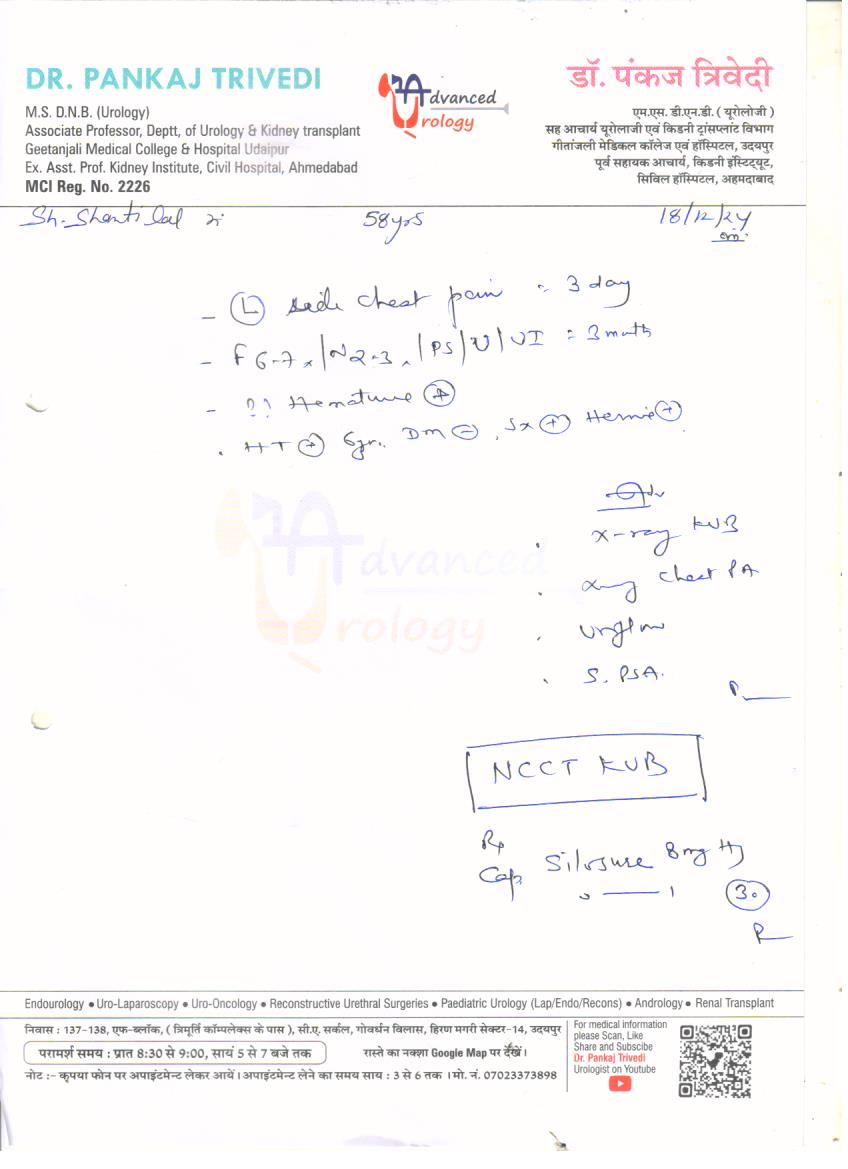 DR. PANKAJ TRIVEDI
M.S. D.N.B. (Urology)
Associate Professor, Deptt, of Urology & Kidney transplant
Geetanjali Medical College & Hospital Udaipur
Ex. Asst. Prof. Kidney Institute, Civil Hospital, Ahmedabad
MCI Reg. No. 2226
Advanced
Urology
डॉ. पंकज त्रिवेदी
एम.एस. डी.एन.डी. ( यूरोलोजी )
सह आचार्य यूरोलाजी एवं किडनी ट्रांसप्लांट विभाग
गीतांजली मेडिकल कॉलेज एवं हॉस्पिटल, उदयपुर
पूर्व सहायक आचार्य, किडनी इंस्टिट्यूट,
सिविल हॉस्पिटल, अहमदाबाद
Sh. Shanti lal 58yrs 18/12/24
- (L) side chest pain = 3 day
- F 6-7 /N 2-3 /PS/U/UI = 3 month
- ?? Hematuria (+)
HT (+) 5yr. DM (-), Sx (+) Hernia (+)
Adv
x-ray KUB
xray chest PA
uroflow
S. PSA.
NCCT KUB
Rp
Cap Silosure 8mg
(30)
Advanced
Urology
Endourology ● Uro-Laparoscopy ● Uro-Oncology ● Reconstructive Urethral Surgeries ● Paediatric Urology (Lap/Endo/Recons) ● Andrology ● Renal Transplant
निवास : 137-138, एफ-ब्लॉक, ( त्रिमूर्ति कॉम्पलेक्स के पास ), सी.ए. सर्कल, गोवर्धन विलास, हिरण मगरी सेक्टर-14, उदयपुर
परामर्श समय : प्रात 8:30 से 9:00, सायं 5 से 7 बजे तक रास्ते का नक्शा Google Map पर देखें ।
नोट :- कृपया फोन पर अपाइंटमेन्ट लेकर आयें । अपाइंटमेन्ट लेने का समय साय : 3 से 6 तक । मो. नं. 07023373898
For medical information
please Scan, Like
Share and Subscibe
Dr. Pankaj Trivedi
Urologist on Youtube